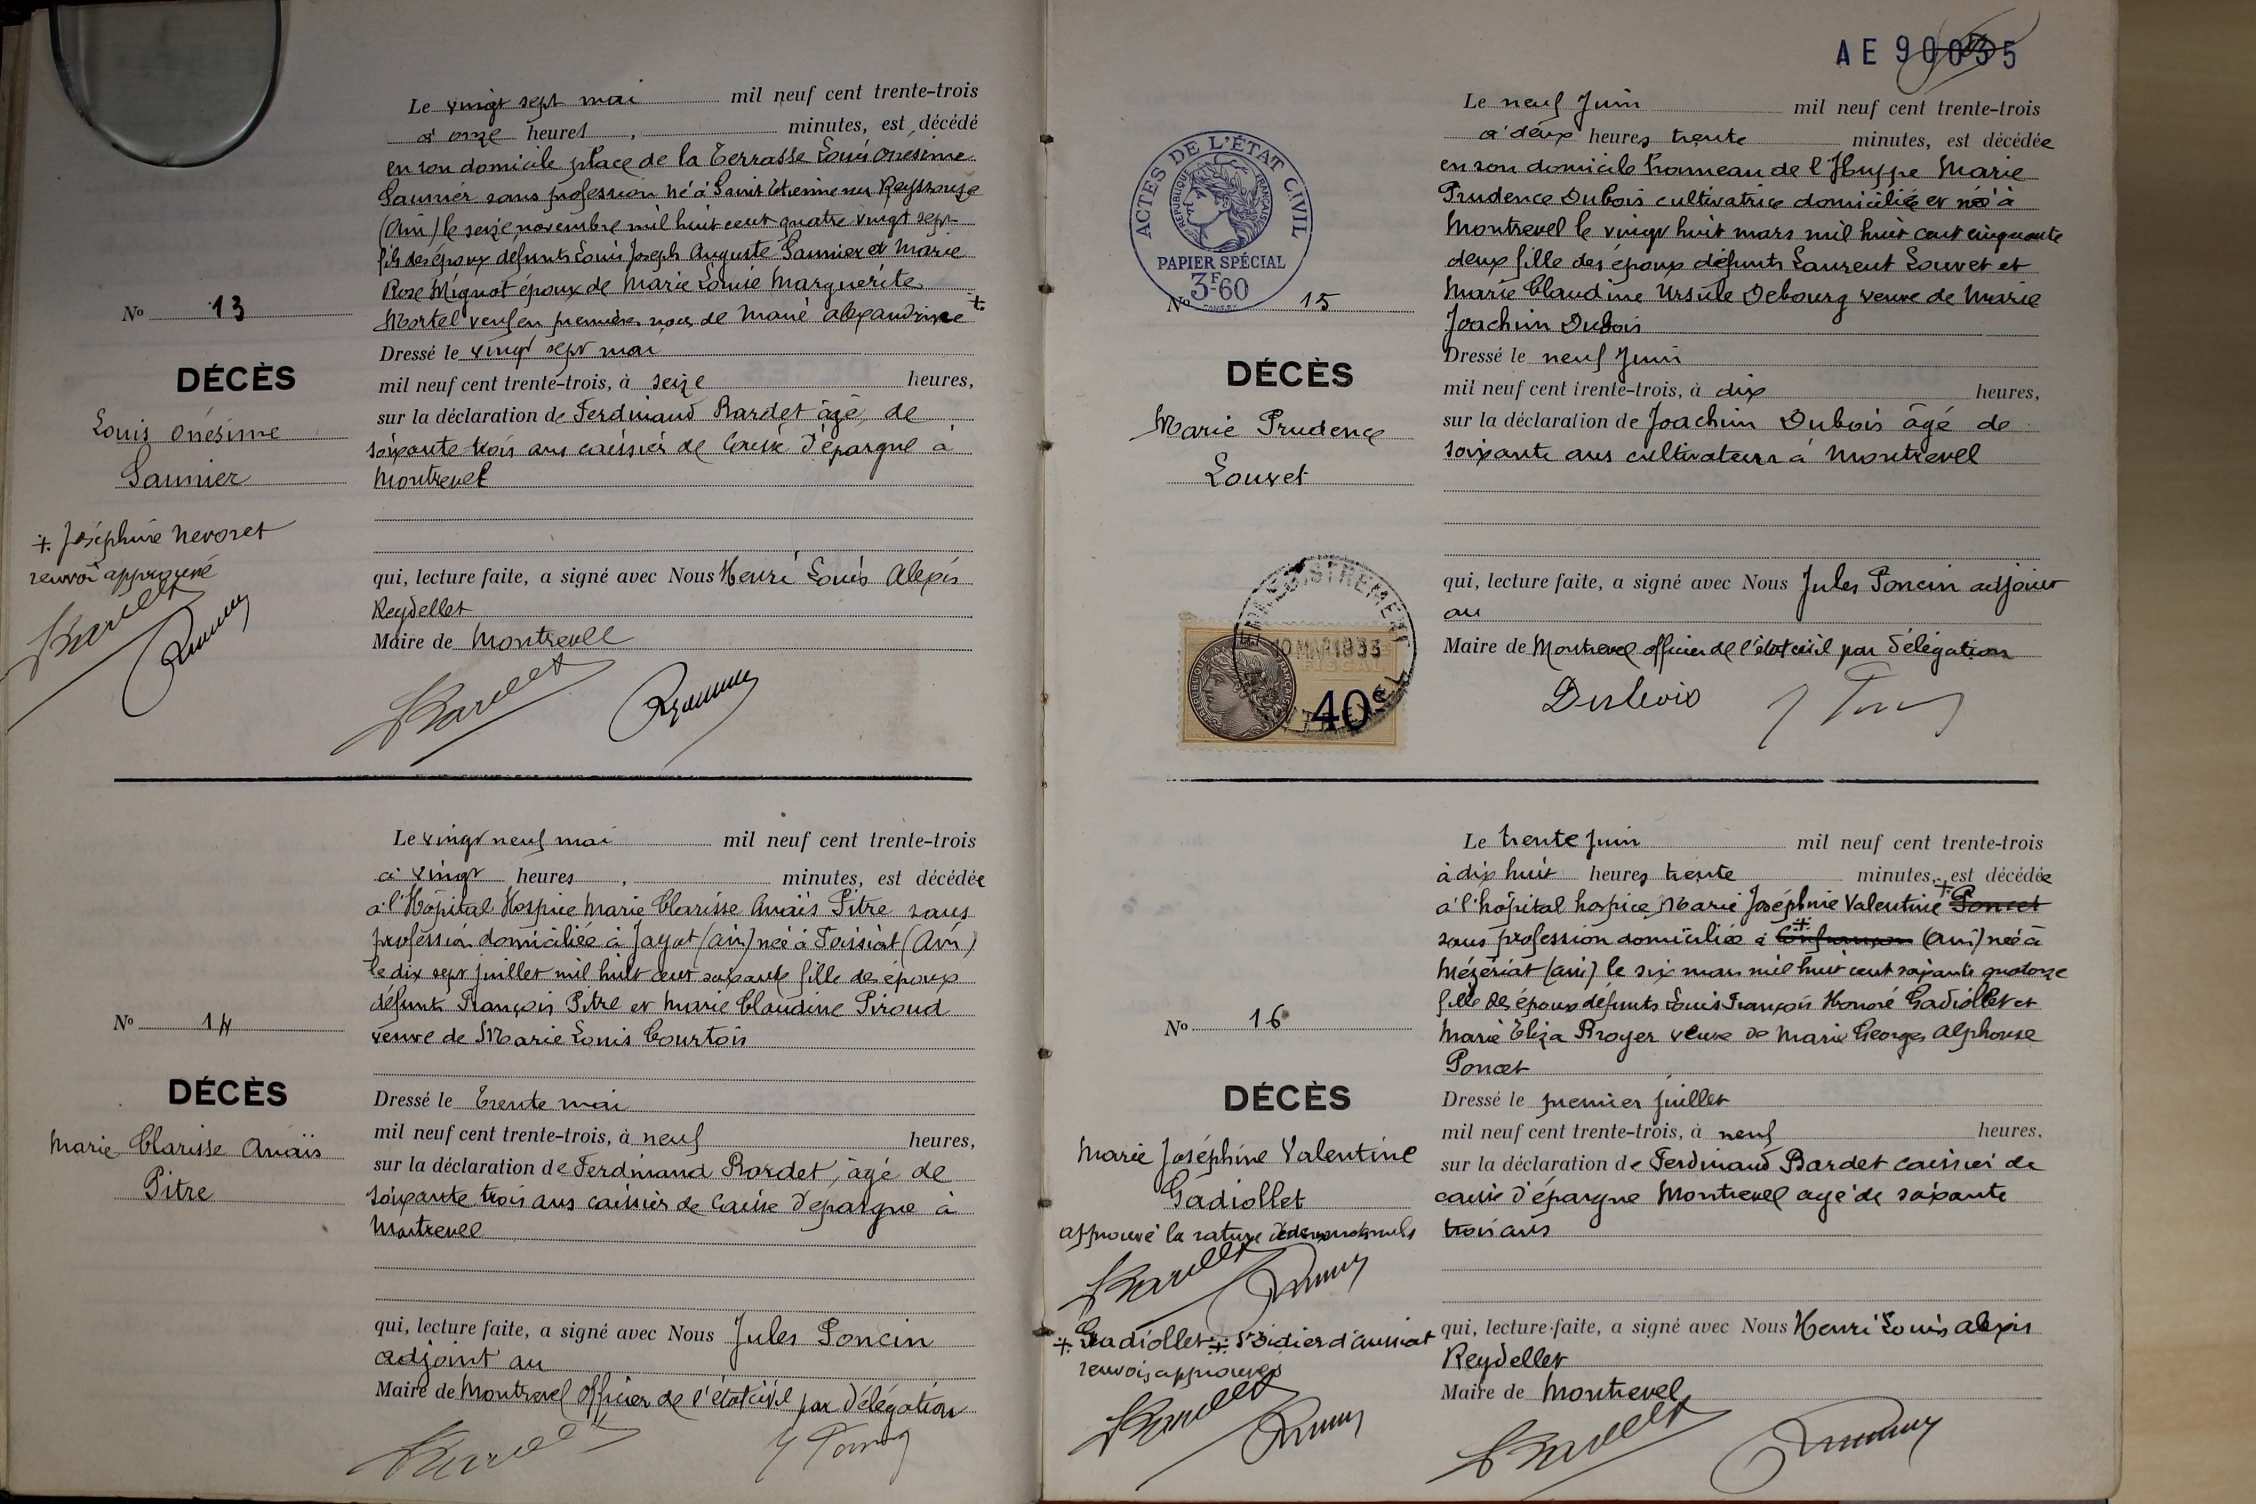 Le vingt sept mai mil neuf cent trente-trois
à onze heures, minutes, est décédé
en son domicile place de la Terrasse Louis Onésime
Saunier sans profession né à Saint Etienne sur Reyssouze
(Ain) le seize novembre mil huit cent quatre vingt sept
fils des époux défunts Louis Joseph Auguste Saunier et Marie
Rose Mignot époux de Marie Louise Marguerite
Mortel veuf en premières noces de Marie Alexandrine +
Nº 13
DÉCÈS
Louis Onésime
Saunier
+ Joséphine Nevoret
renvoi approuvé
Dressé le vingt sept mai
mil neuf cent trente-trois, à seize heures,
sur la déclaration de Ferdinand Bardet âgé de
soixante trois ans caissier de Caisse d'épargne à
Montrevel
qui, lecture faite, a signé avec Nous Henri Louis Alexis
Reydellet
Maire de Montrevel
Le vingt neuf mai mil neuf cent trente-trois
à vingt heures, minutes, est décédée
à l'Hôpital Hospice Marie Clarisse Anaïs Pitre sans
profession domiciliée à Jayat (Ain) née à Foissiat (Ain)
le dix sept juillet mil huit cent soixante fille des époux
défunts François Pitre et Marie Claudine Piroud
veuve de Marie Louis Courtois
Nº 14
DÉCÈS
Marie Clarisse Anaïs
Pitre
Dressé le trente mai
mil neuf cent trente-trois, à neuf heures,
sur la déclaration de Ferdinand Bardet, âgé de
soixante trois ans caissier de Caisse d'épargne à
Montrevel
qui, lecture faite, a signé avec Nous Jules Poncin
adjoint au
Maire de Montrevel officier de l'état civil par délégation
AE 90035
ACTES DE L'ÉTAT CIVIL
RÉPUBLIQUE FRANÇAISE
PAPIER SPÉCIAL
3F60
Le neuf Juin mil neuf cent trente-trois
à deux heures trente minutes, est décédée
en son domicile hameau de l'Huppe Marie
Prudence Dubois cultivatrice domiciliée et née à
Montrevel le vingt huit mars mil huit cent cinquante
deux fille des époux défunts Laurent Louvet et
Marie Claudine Ursule Debourg veuve de Marie
Joachim Dubois
Nº 15
DÉCÈS
Marie Prudence
Louvet
Dressé le neuf Juin
mil neuf cent trente-trois, à dix heures,
sur la déclaration de Joachim Dubois âgé de
soixante ans cultivateur à Montrevel
qui, lecture faite, a signé avec Nous Jules Poncin adjoint
au
Maire de Montrevel officier de l'état civil par délégation
Dubois
ENREGISTREMENT
1933
40c
Le trente Juin mil neuf cent trente-trois
à dix huit heures trente minutes, est décédée
à l'hôpital hospice Marie Joséphine Valentine + Poncet
sans profession domiciliée à + Confrançon (Ain) née à
Mézériat (Ain) le six mars mil huit cent soixante quatorze
fille des époux défunts Louis François Honoré Gadiollet et
Marie Eliza Broyer veuve de Marie Georges Alphonse
Poncet
Nº 16
DÉCÈS
Marie Joséphine Valentine
Gadiollet
approuvé la rature de deux mots nuls
+ Gadiollet + St Didier d'Aussiat
renvois approuvés
Dressé le premier juillet
mil neuf cent trente-trois, à neuf heures.
sur la déclaration de Ferdinand Bardet caissier de
caisse d'épargne Montrevel agé de soixante
trois ans
qui, lecture faite, a signé avec Nous Henri Louis Alexis
Reydellet
Maire de Montrevel